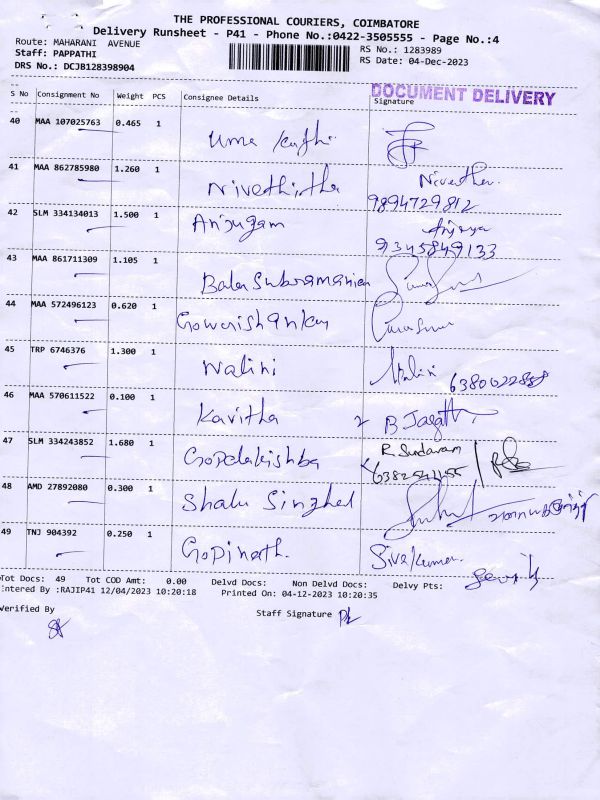 THE PROFESSIONAL COURIERS, COIMBATORE
Delivery Runsheet - P41 - Phone No.:0422-3505555 - Page No.:4
Route: MAHARANI AVENUE RS No.: 1283989
Staff: PAPPATHI RS Date: 04-Dec-2023
DRS No.: DCJB128398904
DOCUMENT DELIVERY
S No Consignment No Weight PCS Consignee Details Signature
40 MAA 107025763 0.465 1 Uma
41 MAA 862785980 1.260 1 Nivethitha Nivetha
9894729812
42 SLM 334134013 1.500 1 Anjugam
9345849133
43 MAA 861711309 1.105 1 Balasubramanian
44 MAA 572496123 0.620 1 Gowrishankar
45 TRP 6746376 1.300 1 Nalini Nalini
46 MAA 570611522 0.100 1 Kavitha
47 SLM 334243852 1.680 1 R. Sundaram
48 AMD 27892080 0.300 1 Shalu Singhal
49 TNJ 904392 0.250 1 Gopinath. Sivakumar.
Tot Docs: 49 Tot COD Amt: 0.00 Delvd Docs: Non Delvd Docs: Delvy Pts:
Entered By :RAJIP41 12/04/2023 10:20:18 Printed On: 04-12-2023 10:20:35
Verified By Staff Signature